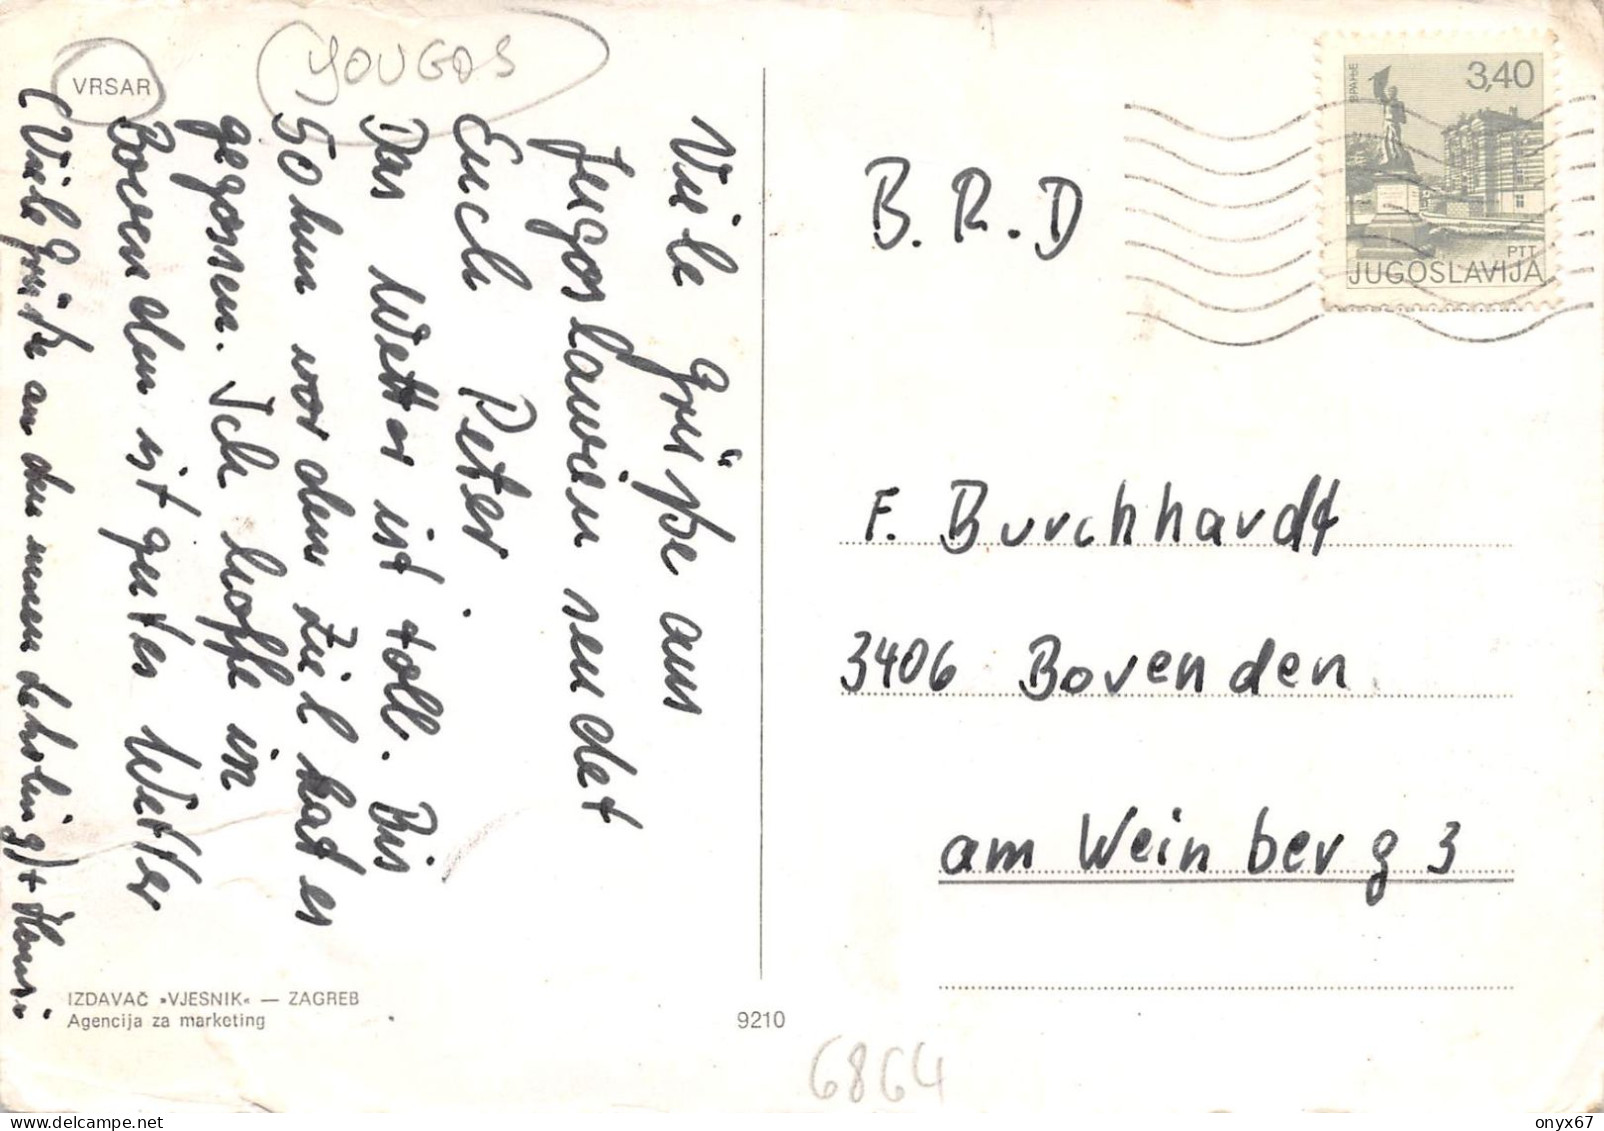 VRSAR
YOUGOS
Viele Grüße aus
Jugoslawien sendet
Euch Peter.
Das Wetter ist toll. Bis
50 km vor dem Ziel hat es
gegossen. Ich hoffe in
Bovenden ist gutes Wetter
(Viele Grüße an den neuen
IZDAVAČ »VJESNIK« — ZAGREB
Agencija za marketing
9210
6864
3,40
ВРАЊЕ
PTT
JUGOSLAVIJA
B.R.D
F. Burchhardt
3406 Bovenden
am Weinberg 3
delcampe.net
onyx67